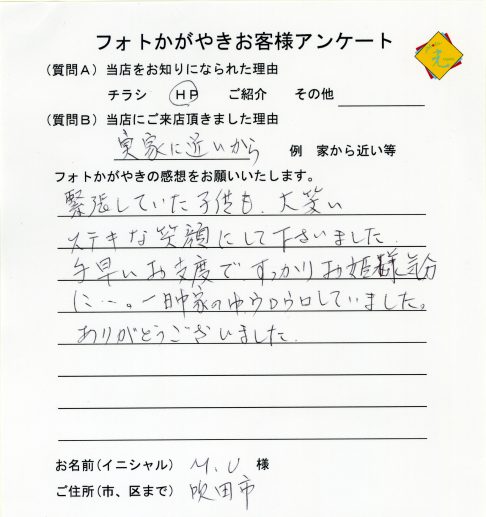 フォトかがやきお客様アンケート
(質問A)当店をお知りになられた理由
チラシ HP ご紹介 その他
(質問B)当店にご来店頂きました理由
実家に近いから 例 家から近い等
フォトかがやきの感想をお願いいたします。
緊張していた子供も、大笑い
ステキな笑顔にして下さいました.
手早いお支度ですっかりお姫様気分
に…。一日中家の中ウロウロしていました。
ありがとうございました.
お名前(イニシャル) M.U 様
ご住所(市、区まで) 吹田市